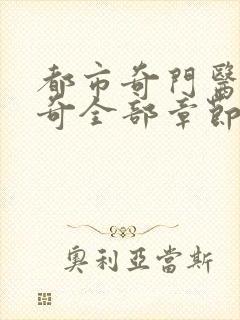 都市奇門醫
奇全部章節
奧利亞當斯